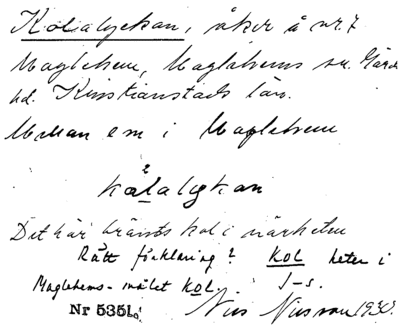 Kolalyckan, åker å nr. 7
Maglehem, Maglehems sn. Gärds
hd. Kristianstads län.
Mellan em i Maglehem
kålalykan
Det här bränts kol i närheten
Rätt förklaring? Kol heter i
Maglehems-målet kol. J-s.
Nr 5351
Nils Nilsson 1930.